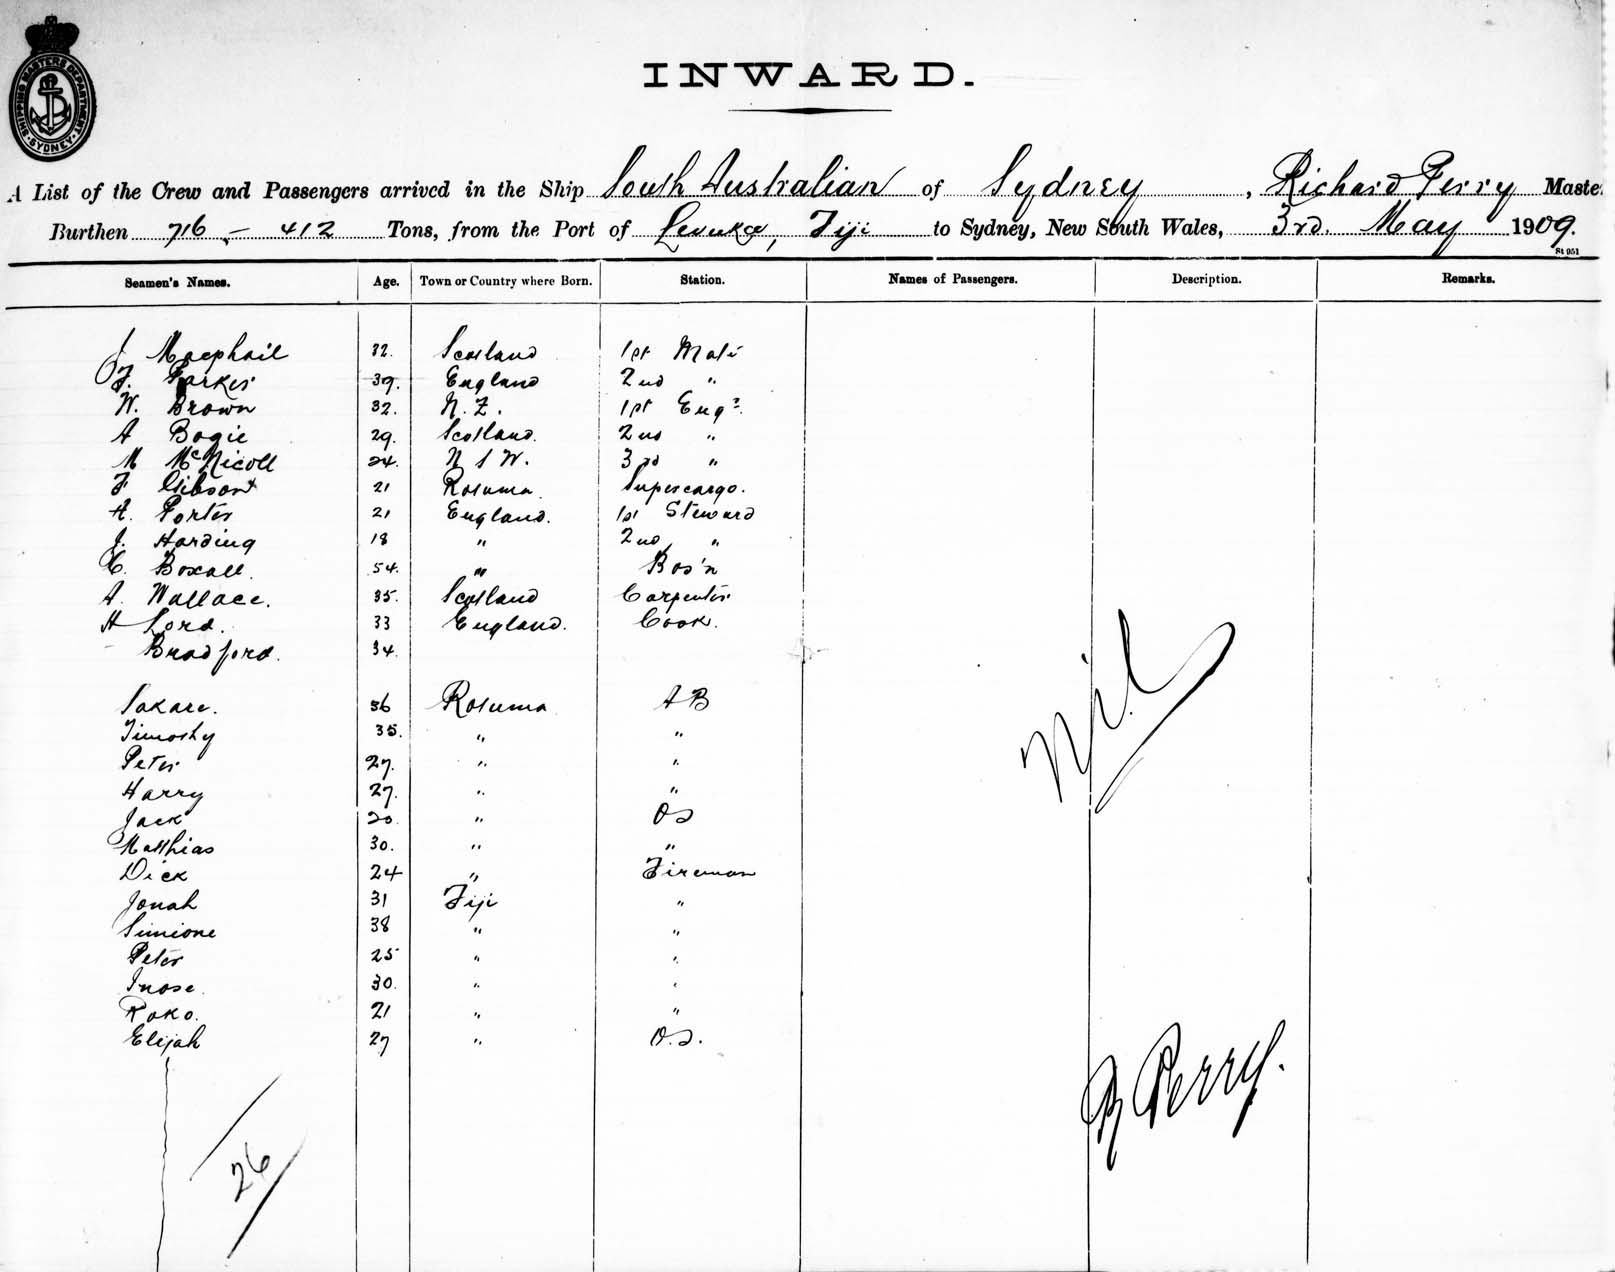 SHIPPING MASTERS DEPARTMENT · SYDNEY ·
INWARD.
A List of the Crew and Passengers arrived in the Ship South Australian of Sydney, Richard Perry Master
Burthen 716 - 412 Tons, from the Port of Levuka, Fiji to Sydney, New South Wales, 3rd. May 1909.
St 951
Seamen's Names. Age. Town or Country where Born. Station. Names of Passengers. Description. Remarks.
J Macphail 32. Scotland 1st Mate
F. Parker 39. England 2nd "
W. Brown 32. N.Z. 1st Engr.
A Bogie 29. Scotland. 2nd "
M McNicoll 24. N S W. 3rd "
F Gibson 21 Rotuma Supercargo.
H. Porter 21 England. 1st Steward
J. Harding 18 " 2nd "
C. Boxall. 54. " Bos'n
A. Wallace. 35. Scotland Carpenter
H Lord. 33 England. Cook.
Bradford. 34.
Sakare. 36 Rotuma AB
Timothy 35. " "
Peter 27. " "
Harry 27. " "
Jack 20. " OS
Matthias 30. " "
Dick 24 " Fireman
Jonah 31 Fiji "
Simione 38 " "
Peter 25 " "
Inose. 30. " "
Roko. 21 " "
Elijah 27 " O.S.
Nil
R Perry.
26